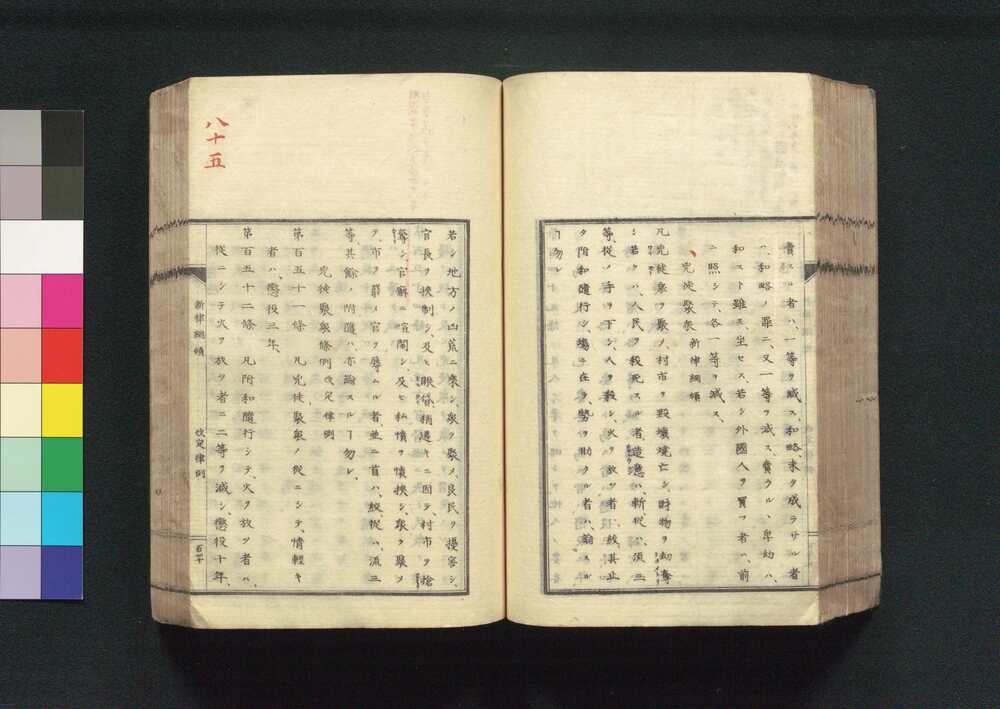 賣ラル者ハ、一等ヲ減ス、和略未タ成ラサル者
ハ、和略ノ罪ニ、又一等ヲ減ス、賣ラル、卑幼ハ、
和スト雖モ、坐セス、若シ外國人ヲ買フ者ハ、前
ニ照シテ、各一等ヲ減ス、
兇徒聚衆 新律綱領
凡兇徒衆ヲ聚メ、村市ヲ毀壊燒亡シ、財物ヲ劫奪
シ、若クハ、人民ヲ殺死スル者、造意ハ、斬、從ハ、流三
等、從ノ手ヲ下シ、人ヲ殺シ、火ヲ放ツ者ハ、絞、其止
タ附和隨行シ、場ニ在テ、勢ヲ助クル者ハ、論スル
ヿ勿レ、
若シ地方ノ凶荒ニ乘シ、衆ヲ聚メ、良民ヲ擾害シ、
官長ヲ挾制シ、及ヒ賑貸稍遲キニ因テ、村市ヲ搶
奪シ、官廨ニ喧鬧シ、及ヒ私憤ヲ懷挾シ、衆ヲ聚メ
テ、市ヲ罷メ、官ヲ辱ムル者、並ニ首ハ、絞、從ハ、流三
等、其餘ノ附隨ハ、亦論スルヿ勿レ、
兇徒聚衆條例 改定律例
第百五十一條 凡兇徒聚衆ノ從ニシテ、情輕キ
者ハ、懲役三年、
第百五十二條 凡附和隨行シテ、火ヲ放ツ者ハ、
從ニシテ火ヲ放ツ者ニ二等ヲ減シ、懲役十年、
新律綱領 改定律例
八十五